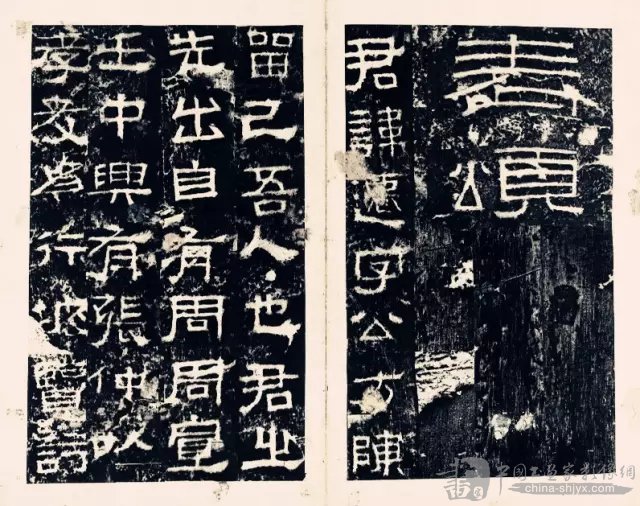 表頌
君諱遷字公方陳
留己吾人也君之
先出自有周周宣
王中興有張仲以
孝友為行披覽詩
china-shjyx.com